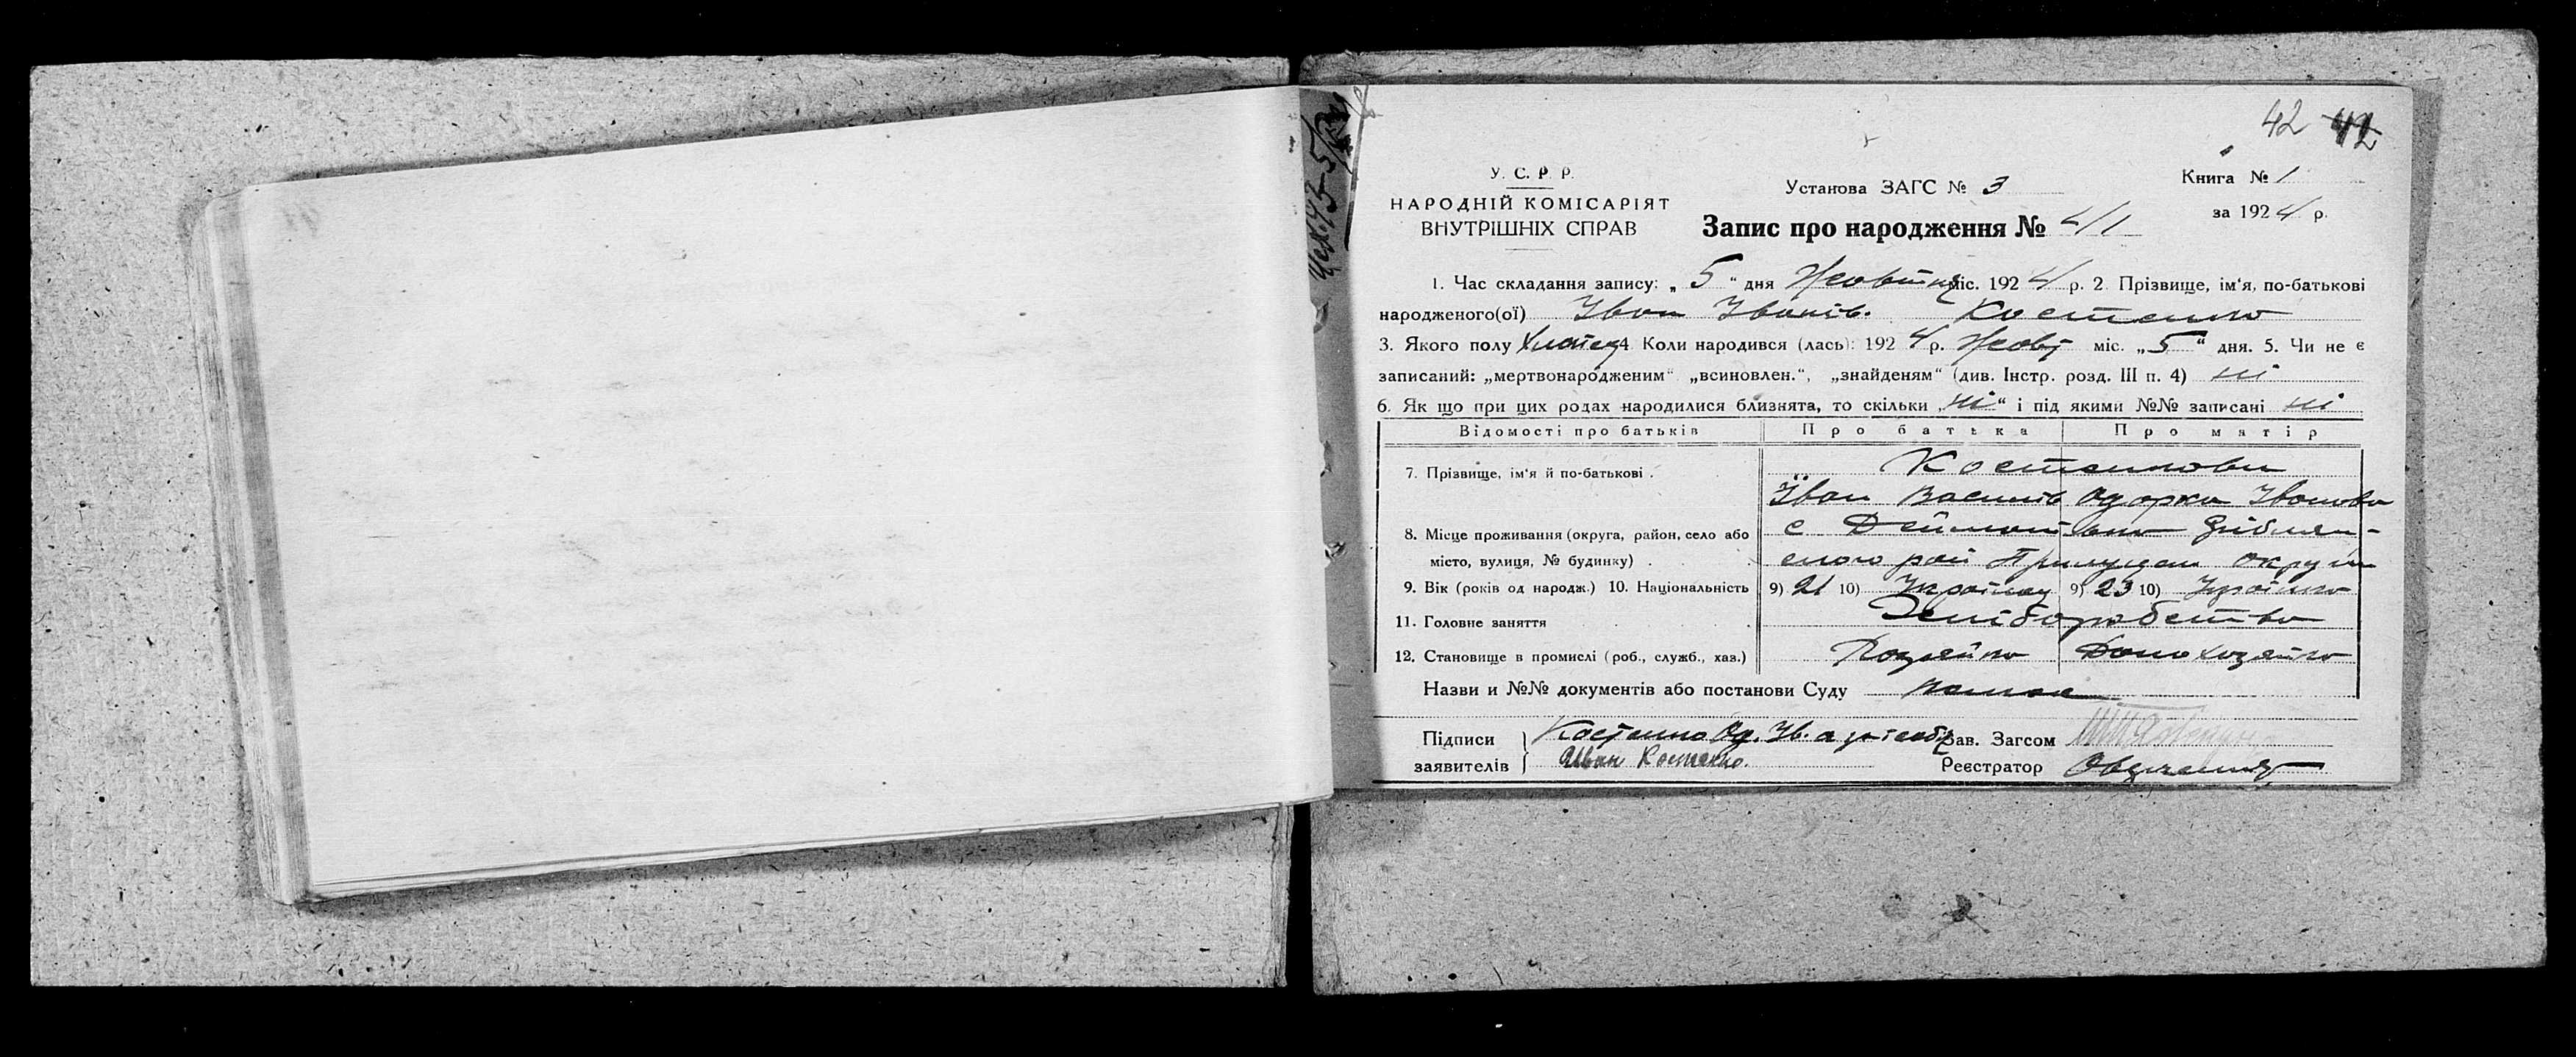 42 42
У. С. Р. Р.
НАРОДНІЙ КОМІСАРІЯТ
ВНУТРІШНІХ СПРАВ
Установа ЗАГС № 3
Книга № 1
за 1924 р.
Запис про народження № 41
1. Час складання запису: „ 5 “ дня Жовтня міс. 1924 р. 2. Прізвище, ім'я, по-батькові
народженого(ої) Іван Іванів. Костенко
3. Якого полу Хлопец 4. Коли народився (лась): 1924 р. Жовт міс. „5“ дня. 5. Чи не є
записаний: „мертвонародженим“ „всиновлен.“, „знайденям“ (див. Інстр. розд. III п. 4) ні
6. Як що при цих родах народилися близнята, то скільки „ні“ і під якими №№ записані ні
Відомості про батьків Про батька Про матір
7. Прізвище, ім'я й по-батькові . Костенкови
Іван Василів Одарка Іванова
8. Місце проживання (округа, район, село або с Дейманівка Срібнян-
місто, вулиця, № будинку) . ського рай Прилуцьк округи
9. Вік (років од народж.) 10. Національність 9) 21 10) Українец 9) 23 10) Українка
11. Головне заняття Хліборобство
12. Становище в промислі (роб., служб., хаз.) Хозяйно Домохозяйка
Назви и №№ документів або постанови Суду
Підписи заявителів Костенко Од. Ів. а за себе
Иван Костенко.
Зав. Загсом
Реєстратор